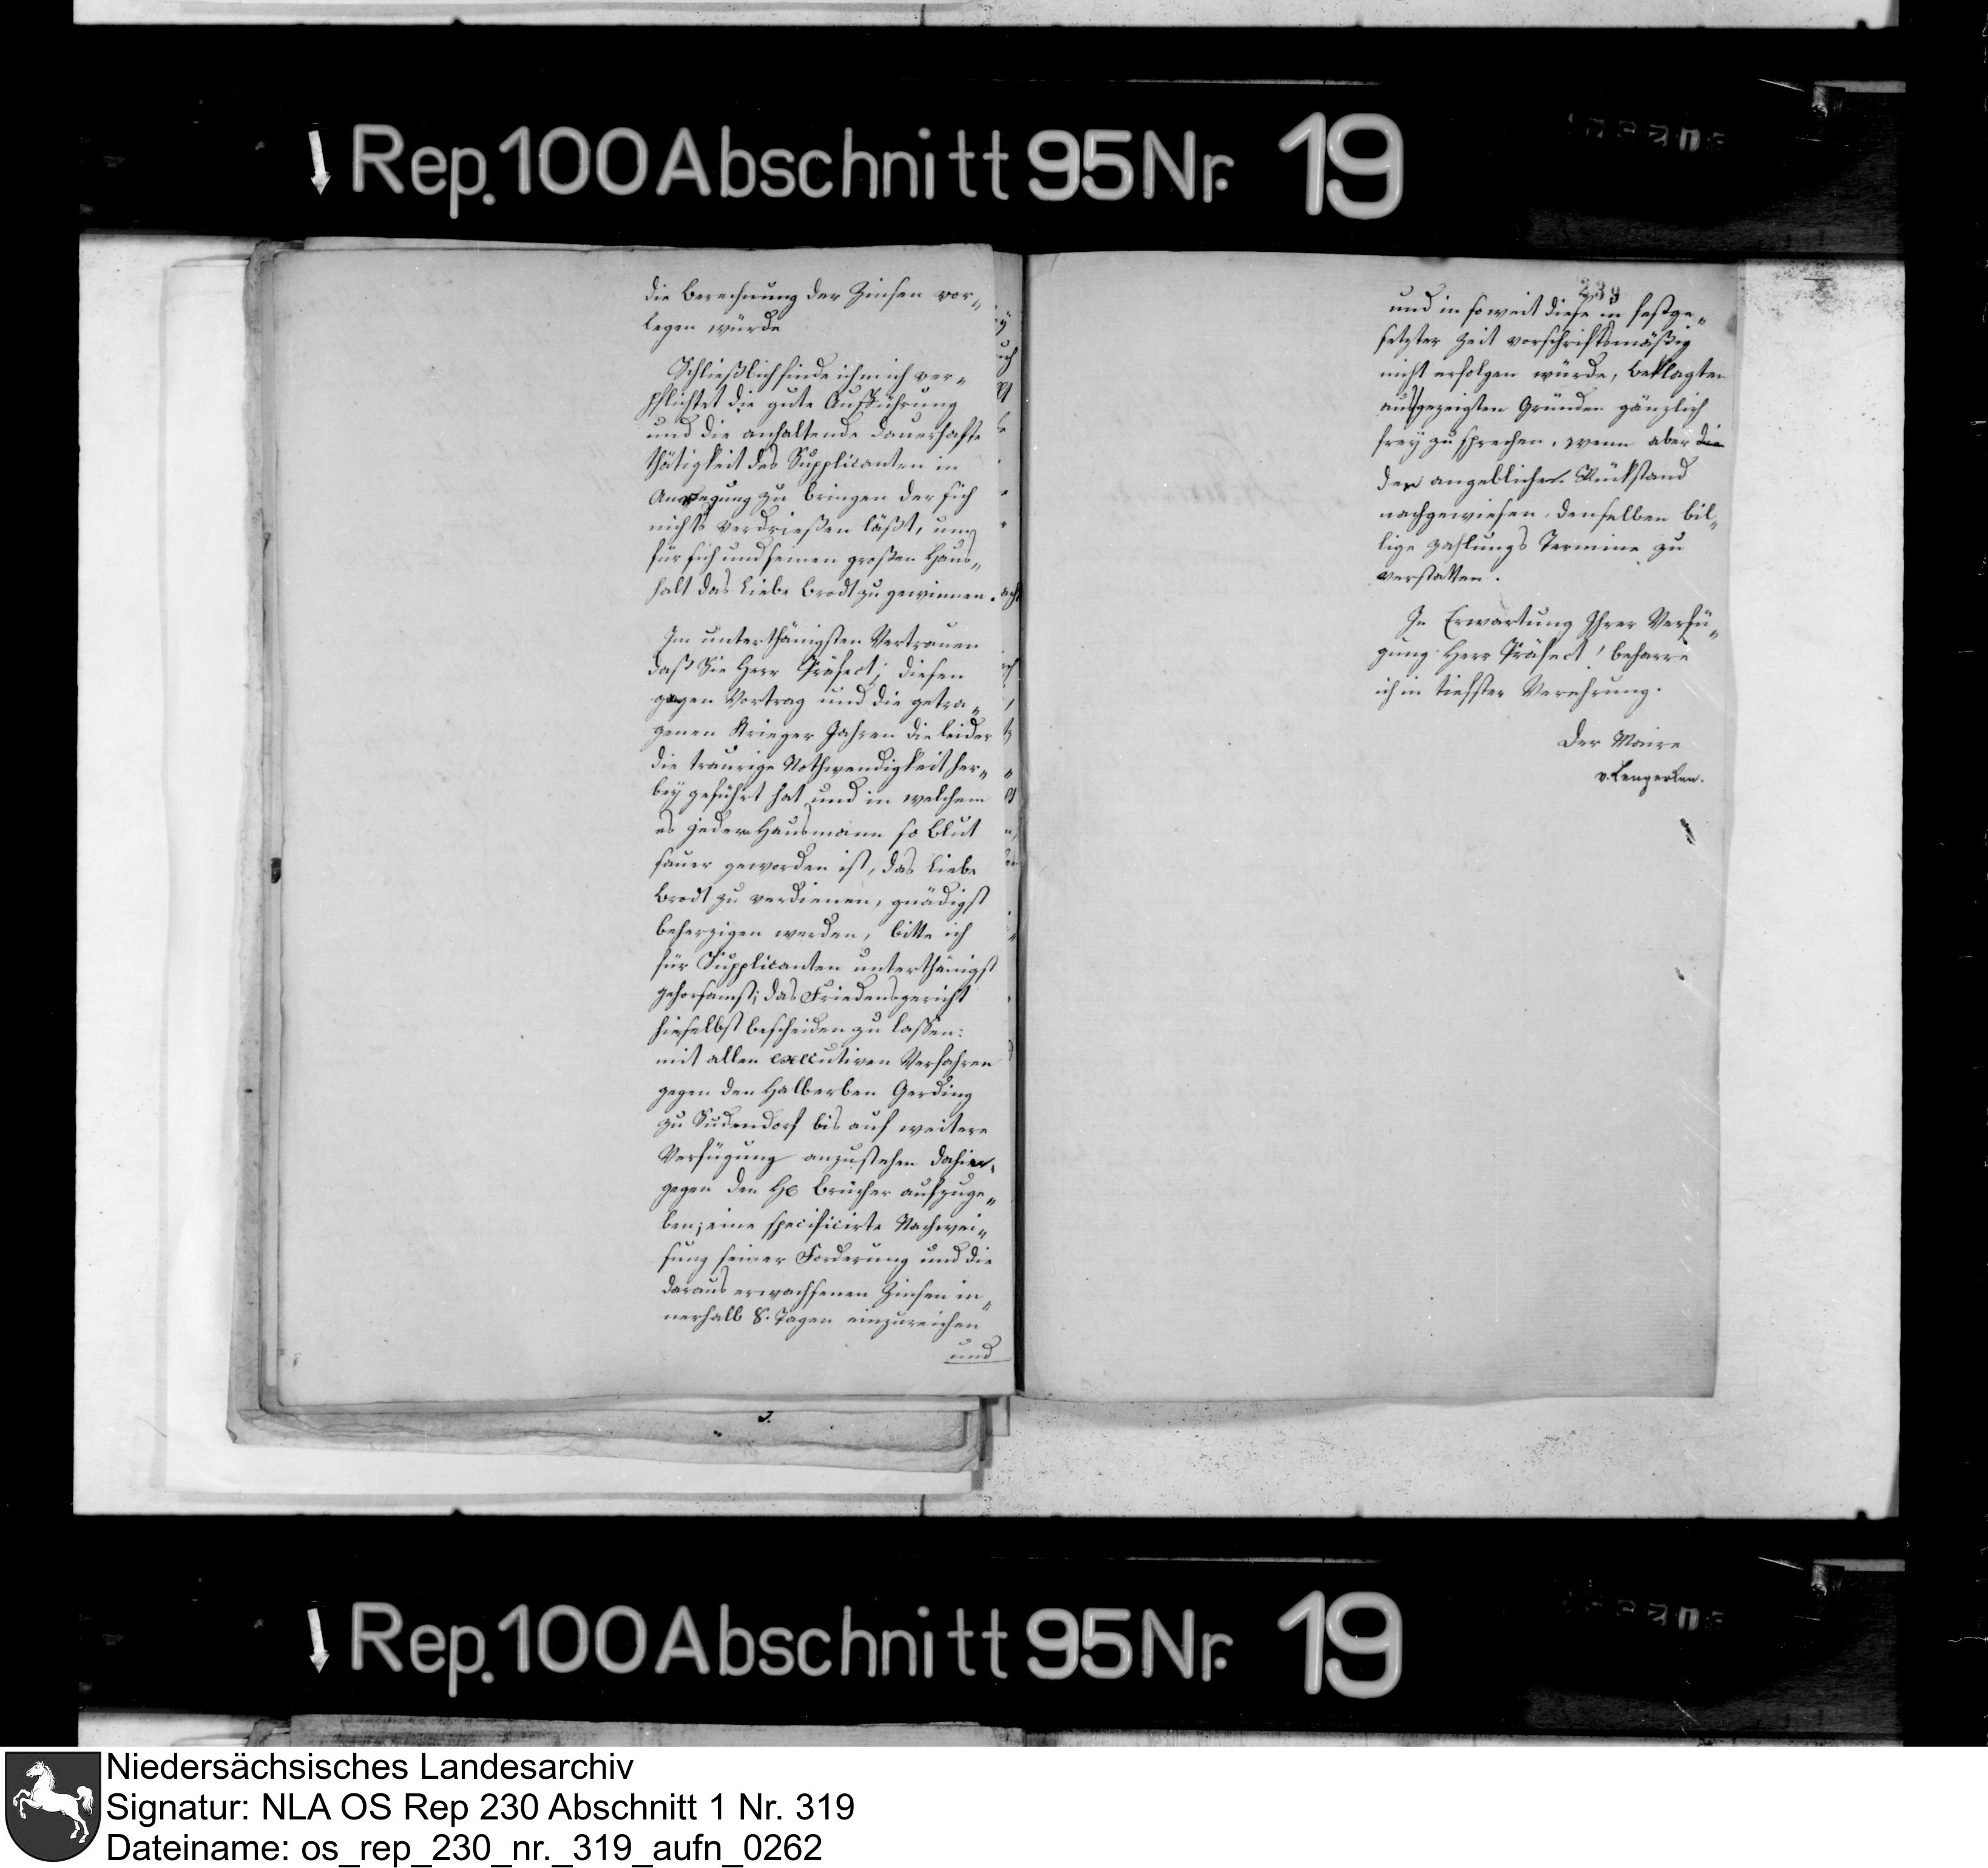 Rep. 100 Abschnitt 95 Nr. 19
die Berechnung der Zinsen vor„
legen würde
Schließlich finde ich mich ver„
pflichtet die gute Aufführung
und die anhaltende dauerhafte
thätigkeit des Supplicanten in
Anregung zu bringen der sich
nichts verdrießen läßt, um
für sich und seinen großen Haus„
halt das Liebe Brodt zu gewinnen.
Im unterthänigsten Vertrauen
daß Sie Herr Präfect, diesen
gegen Vortrag und die getra„
genen Krieger Jahren die leider
die traurige Nothwendigkeit her„
bey geführt hat und in welchem
es jedem Hausmann so blut
sauer geworden ist, das liebe
Brodt zu verdienen, gnädigst
beherzigen werden, bitte ich
für Supplicanten unterthänigst
gehorsamst; das Friedensgericht
hieselbst bescheiden zu lassen:
mit allen executiven Verfahren
gegen den Halberben Gerding
zu Sudendorf bis auf weitere
Verfügung anzustehen dahin„
gegen den H Brücher aufzuge„
ben; eine specificirte Nachwei„
sung seiner Forderung und die
daraus erwachsenen Zinsen in„
nerhalb 8. Tagen einzureichen
und
239
und in so weit diese in festge„
setzter Zeit vorschriftsmäßig
nicht erfolgen würde, Beklagten
aus gezeigten Gründen gänzlich
frey zu sprechen, wenn aber die
der angebliche Rückstand
nachgewiesen, denselben bil„
lige Zahlungs Termine zu
verstatten.
In Erwartung Ihrer Verfü„
gung Herr Präfect! beharre
ich in tiefster Verehrung.
Der Maire
v. Lengerken.
Rep. 100 Abschnitt 95 Nr. 19
Niedersächsisches Landesarchiv
Signatur: NLA OS Rep 230 Abschnitt 1 Nr. 319
Dateiname: os_rep_230_nr._319_aufn_0262